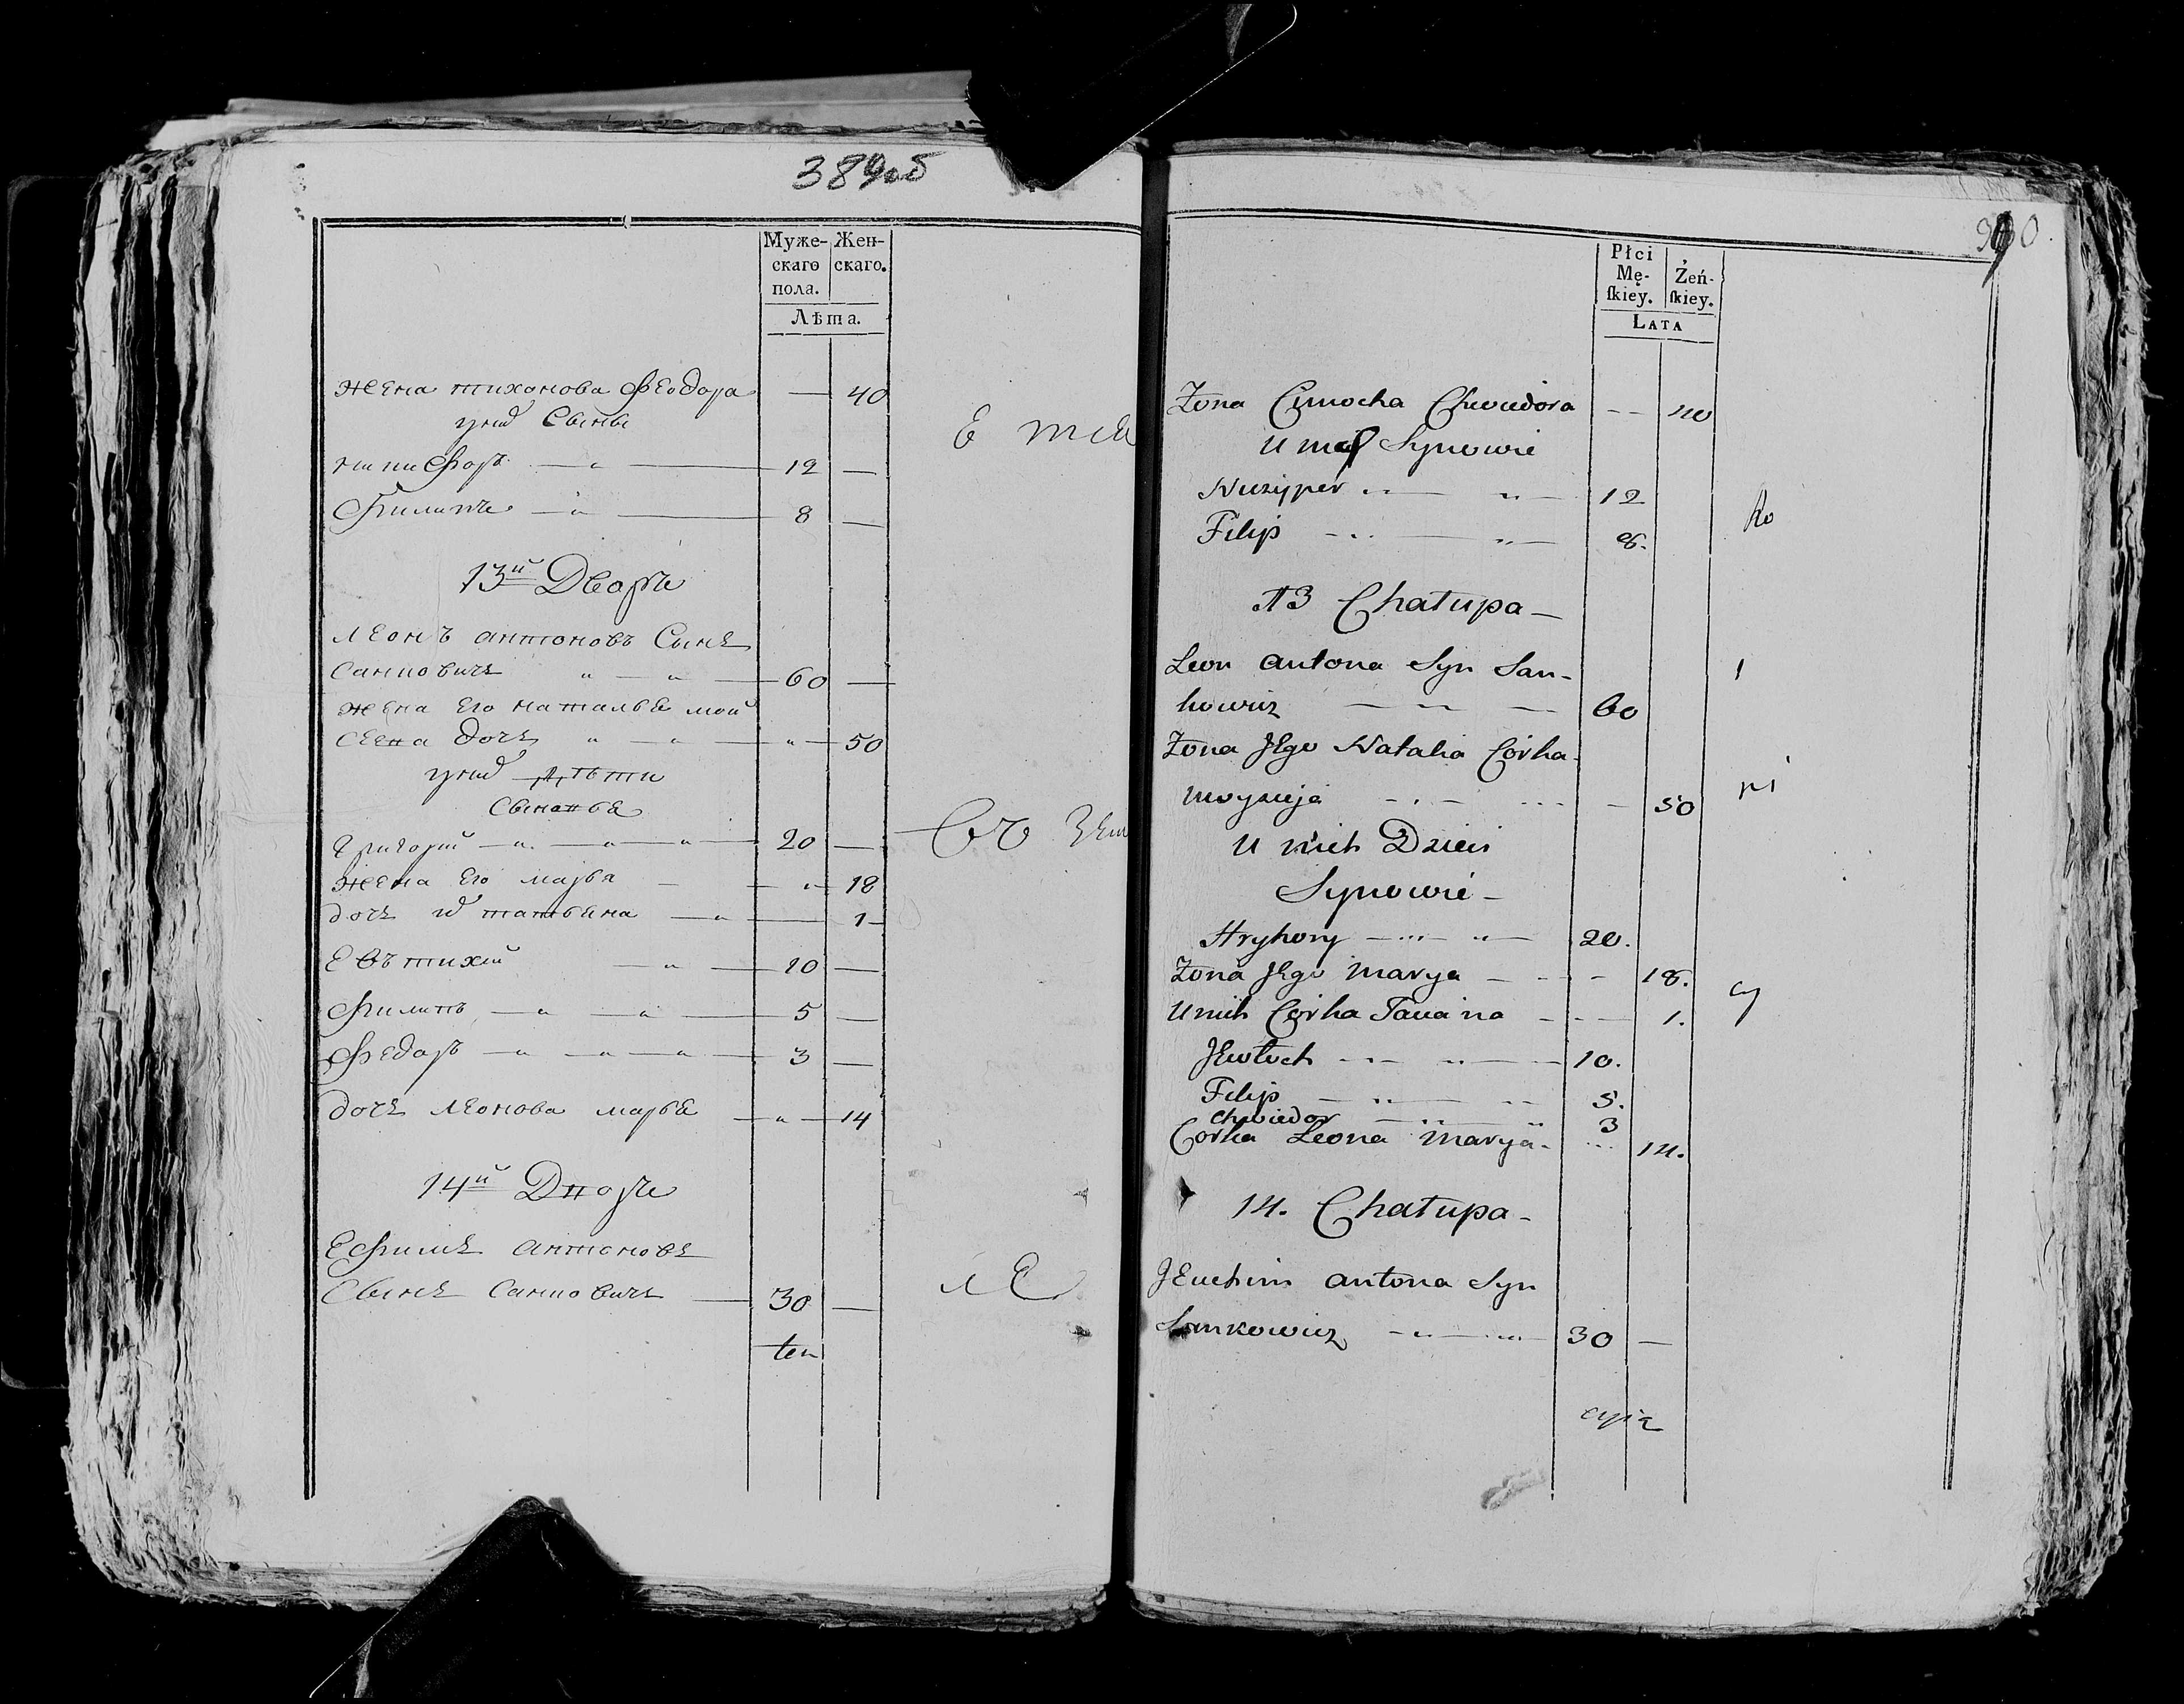 389об
Муже- Жен-
скаго скаго.
пола.
Лѣта.
жена тихонова Феодора — 40
униⷯ Сыны
никифоръ — 12 —
Филипъ — 8 —
13й Дворъ
леонъ антоновъ Сынъ
Санковичъ 60 —
жена его наталья мой
сеева дочь 50
униⷯ дѣти
Сыновья
григорий 20 —
жена его марья — 18
дочь иⷯ татьяна — 1
Евътихий — 10 —
Филипъ — 5 —
Федоръ — 3 —
дочь леонова марья — 14
14й Дворъ
Ефимъ антоновъ
Сынъ Санковичъ — 30 —
990
Płci
Mę- Żeń-
skiey. skiey.
Lata
Żona Cimocha Chwiedora -- 40
U niey Synowie
Niczyper 12
Filip 8.
13 Chałupa —
Leon antona Syn San-
kowicz 60
Żona JEgo Natalia Córka
moyzieja — 50
U nich Dzieci
Synowie -
Hryhory 20.
Żona JEgo Marya — 18.
U nich Córka Tacianna — 1.
JEwtuch 10.
Filip 5.
Chwiedor 3
Corka Leona Marya - 14.
14. Chałupa -
JEuchim antona Syn
Sankowicz 30 —